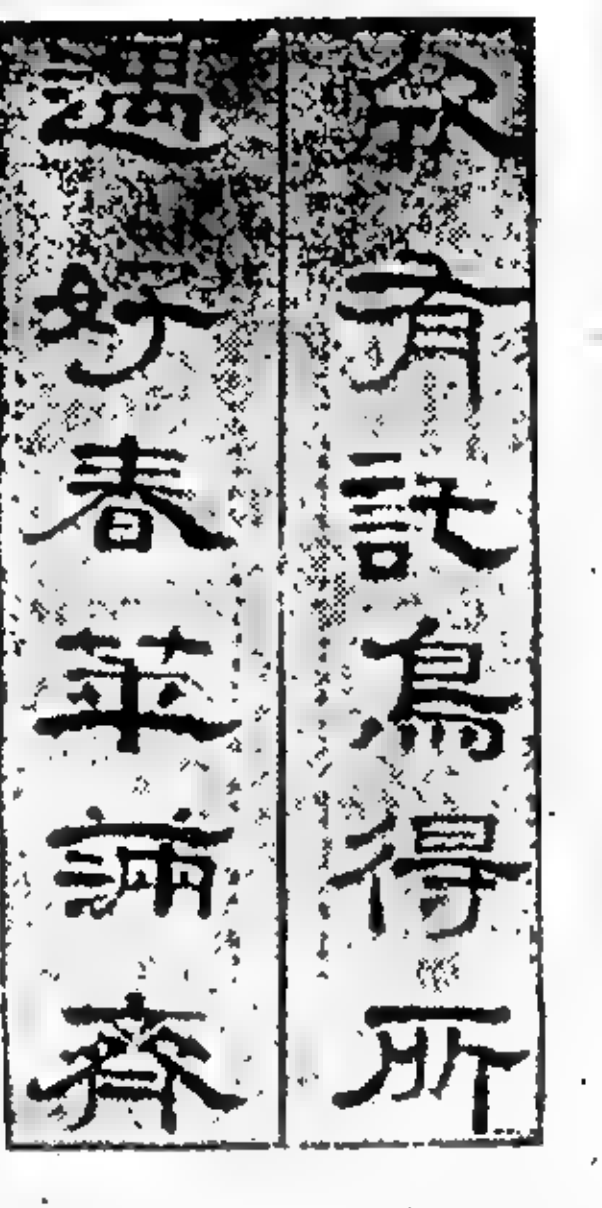 有託鳥得所
遇好春華滿齊